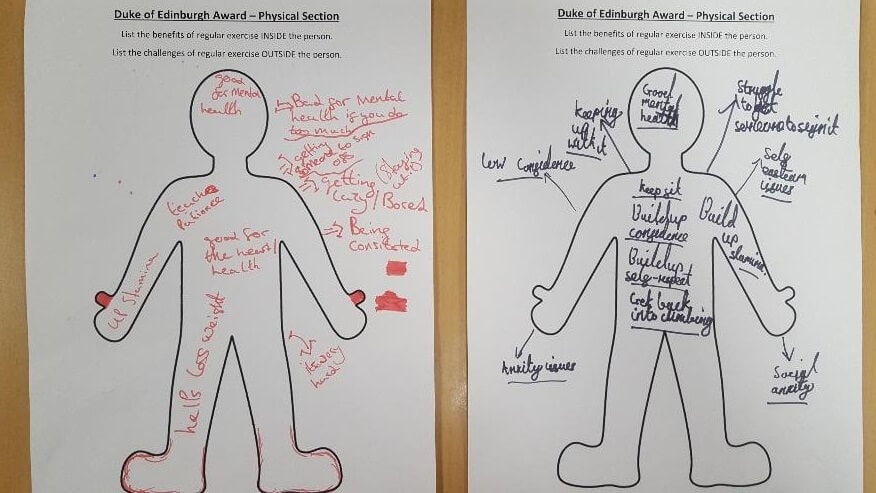 Duke of Edinburgh Award – Physical Section
List the benefits of regular exercise INSIDE the person.
List the challenges of regular exercise OUTSIDE the person.
good
for mental
health
Bad for mental
health if you do
too much
getting
someone to sign
off
getting (staying
Lazy / Bored
Being
good for
the heart/
health
UP Stamina
helps Loss weight
its very
hard
Duke of Edinburgh Award – Physical Section
List the benefits of regular exercise INSIDE the person.
List the challenges of regular exercise OUTSIDE the person.
Good
mental
health
Keeping
up
with it
Struggle
to get
someone to sign it
Low Confidence
Self
esteem
issues
keep fit
Build up
confidence
Build
up
stamina
Build up
self-respect
Get back
into climbing
Anxity issues
Social
anxity